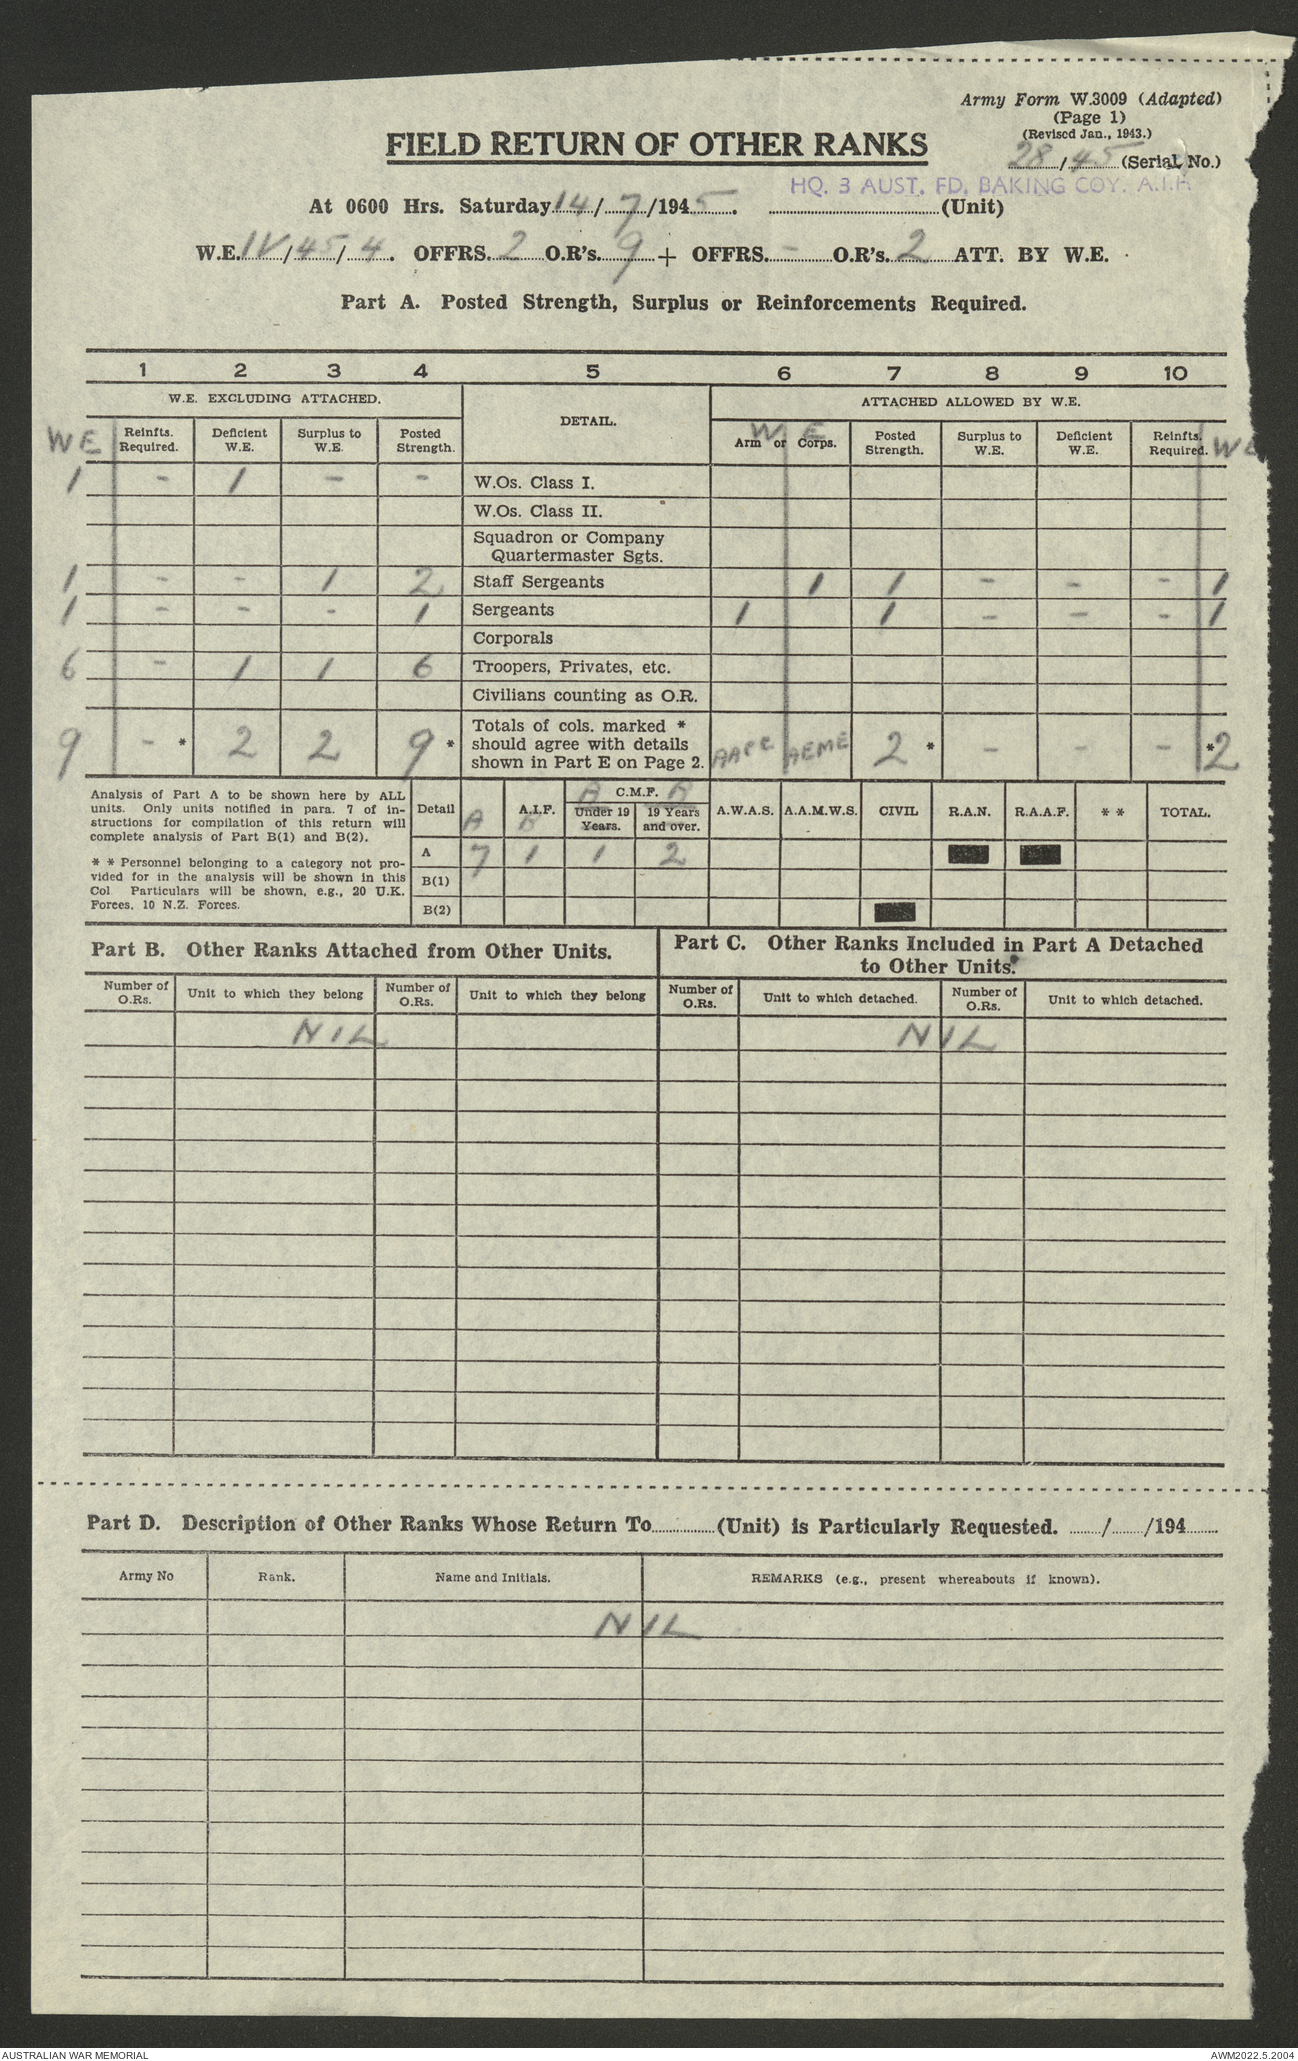 Army Form W.3009 (Adapted)
(Page 1)
(Revised Jan., 1943.)
28/45 (Serial No.)
FIELD RETURN OF OTHER RANKS
HQ. 3 AUST. FD. BAKING COY. A.I.F.
At 0600 Hrs. Saturday 14/7/1945. (Unit)
W.E. IV/45/4. OFFRS. 2 O.R's. 9 + OFFRS. - O.R's. 2 ATT. BY W.E.
Part A. Posted Strength, Surplus or Reinforcements Required.
1 2 3 4 5 6 7 8 9 10
W.E. EXCLUDING ATTACHED. DETAIL. ATTACHED ALLOWED BY W.E.
WE Reinfts. Required. Deficient W.E. Surplus to W.E. Posted Strength. W E Arm or Corps. Posted Strength. Surplus to W.E. Deficient W.E. Reinfts. Required. WE
1 - 1 - - W.Os. Class I.
W.Os. Class II.
Squadron or Company
Quartermaster Sgts.
1 - - 1 2 Staff Sergeants 1 1 - - - 1
1 - - - 1 Sergeants 1 1 - - - 1
Corporals
6 - 1 1 6 Troopers, Privates, etc.
Civilians counting as O.R.
Totals of cols. marked *
9 - * 2 2 9 * should agree with details AAPC AEME 2 * - - - * 2
shown in Part E on Page 2.
Analysis of Part A to be shown here by ALL
units. Only units notified in para. 7 of in-
structions for compilation of this return will
complete analysis of Part B(1) and B(2).
* * Personnel belonging to a category not pro-
vided for in the analysis will be shown in this
Col Particulars will be shown, e.g., 20 U.K.
Forces, 10 N.Z. Forces.
Detail A A.I.F. B C.M.F. Under 19 Years. 19 Years and over. A.W.A.S. A.A.M.W.S. CIVIL R.A.N. R.A.A.F. * * TOTAL.
A 7 1 1 2
B(1)
B(2)
Part B. Other Ranks Attached from Other Units.
Part C. Other Ranks Included in Part A Detached
to Other Units.
Number of O.Rs. Unit to which they belong Number of O.Rs. Unit to which they belong Number of O.Rs. Unit to which detached. Number of O.Rs. Unit to which detached.
NIL NIL
Part D. Description of Other Ranks Whose Return To (Unit) is Particularly Requested. / /194
Army No Rank. Name and Initials. REMARKS (e.g., present whereabouts if known).
NIL
AUSTRALIAN WAR MEMORIAL AWM2022.5.2004